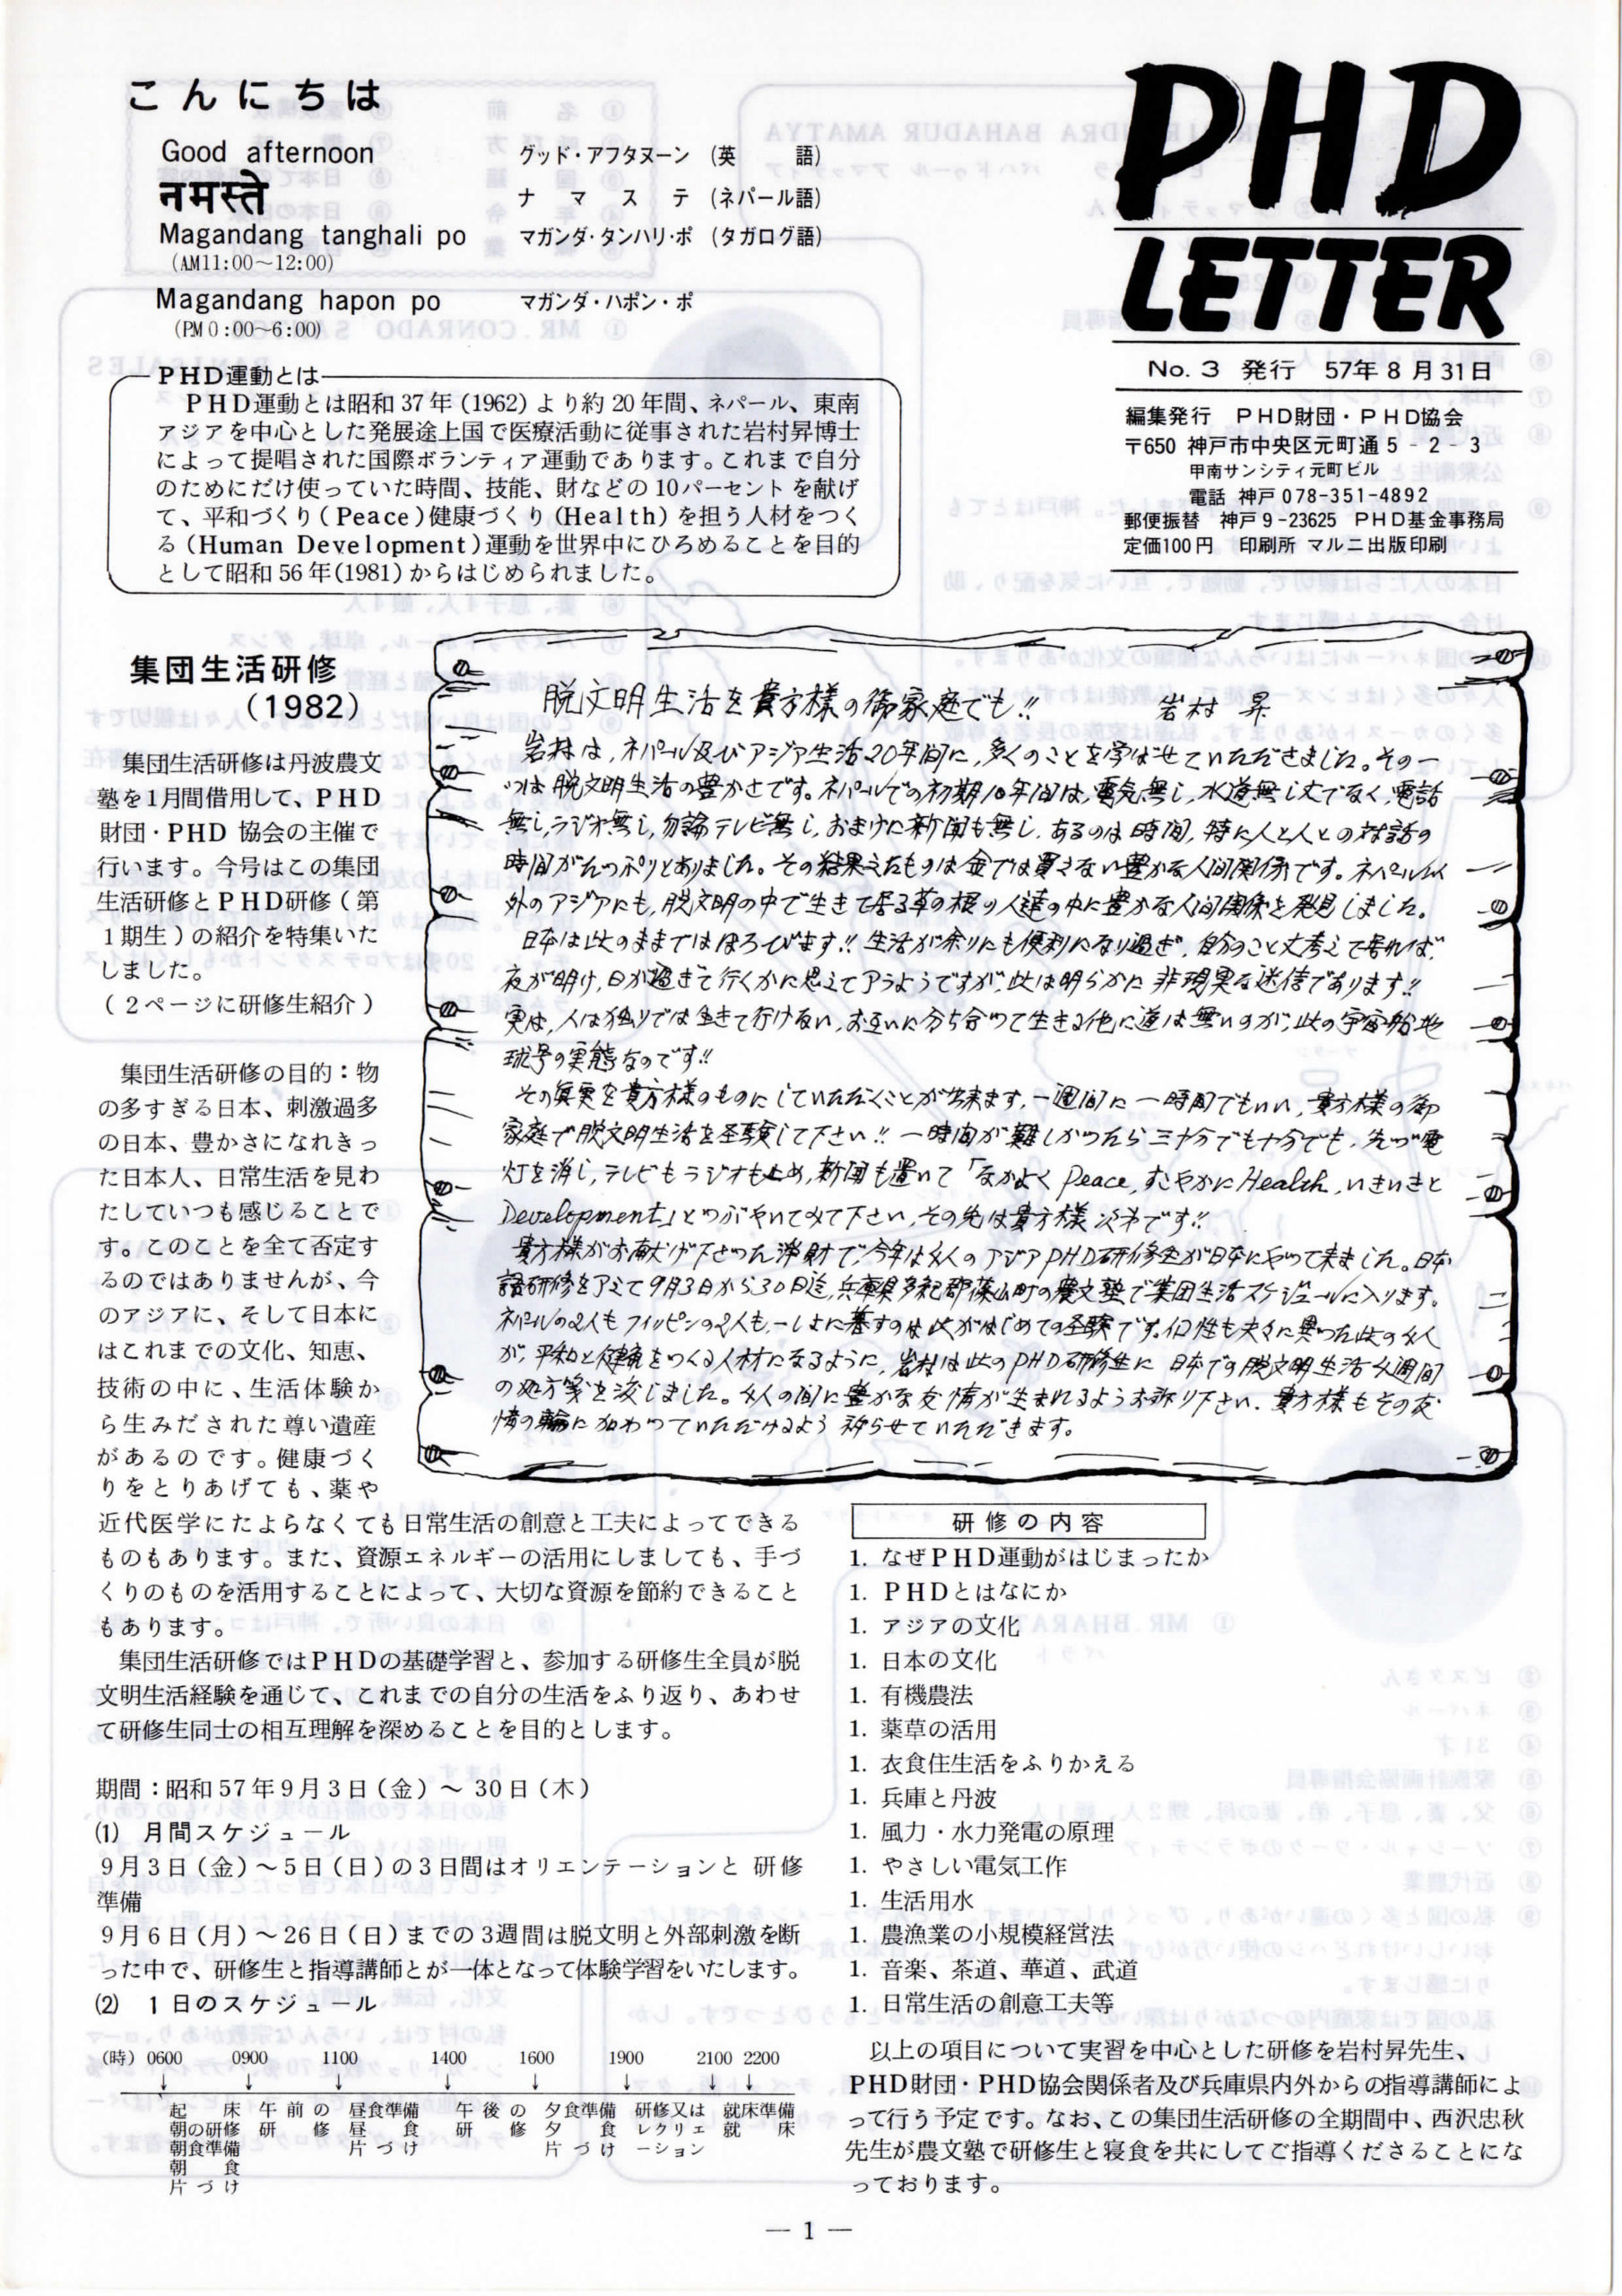 こんにちは
Good afternoon グッド・アフタヌーン (英 語)
नमस्ते ナマステ (ネパール語)
Magandang tanghali po マガンダ・タンハリ・ポ (タガログ語)
(AM11:00～12:00)
Magandang hapon po マガンダ・ハポン・ポ
(PM 0:00～6:00)
PHD
LETTER
No. 3 発行 57年8月31日
編集発行 PHD財団・PHD協会
〒650 神戸市中央区元町通5-2-3
甲南サンシティ元町ビル
電話 神戸 078-351-4892
郵便振替 神戸9-23625 PHD基金事務局
定価100円 印刷所 マルニ出版印刷
PHD運動とは
PHD運動とは昭和37年(1962)より約20年間、ネパール、東南
アジアを中心とした発展途上国で医療活動に従事された岩村昇博士
によって提唱された国際ボランティア運動であります。これまで自分
のためにだけ使っていた時間、技能、財などの10パーセントを献げ
て、平和づくり(Peace)健康づくり(Health)を担う人材をつく
る(Human Development)運動を世界中にひろめることを目的
として昭和56年(1981)からはじめられました。
集団生活研修
(1982)
集団生活研修は丹波農文
塾を1月間借用して、PHD
財団・PHD協会の主催で
行います。今号はこの集団
生活研修とPHD研修(第
1期生)の紹介を特集いた
しました。
(2ページに研修生紹介)
集団生活研修の目的：物
の多すぎる日本、刺激過多
の日本、豊かさになれきっ
た日本人、日常生活を見わ
たしていつも感じることで
す。このことを全て否定す
るのではありませんが、今
のアジアに、そして日本に
はこれまでの文化、知恵、
技術の中に、生活体験か
ら生みだされた尊い遺産
があるのです。健康づく
りをとりあげても、薬や
近代医学にたよらなくても日常生活の創意と工夫によってできる
ものもあります。また、資源エネルギーの活用にしましても、手づ
くりのものを活用することによって、大切な資源を節約できること
もあります。
集団生活研修ではPHDの基礎学習と、参加する研修生全員が脱
文明生活経験を通じて、これまでの自分の生活をふり返り、あわせ
て研修生同士の相互理解を深めることを目的とします。
期間：昭和57年9月3日(金)～30日(木)
(1) 月間スケジュール
9月3日(金)～5日(日)の3日間はオリエンテーションと研修
準備
9月6日(月)～26日(日)までの3週間は脱文明と外部刺激を断
った中で、研修生と指導講師とが一体となって体験学習をいたします。
(2) 1日のスケジュール
(時) 0600 0900 1100 1400 1600 1900 2100 2200
起床 午前の研修 昼食準備 午後の研修 夕食準備 研修又は 就床準備
朝の研修 昼食 夕食 レクリエ 就床
朝食準備 片づけ 片づけ ーション
朝食
片づけ
脱文明生活を貴方様の御家庭でも!! 岩村 昇
岩村は、ネパール及びアジア生活20年間に、多くのことを学ばせていただきました。その一
つは脱文明生活の豊かさです。ネパールでの初期10年間は、電気無し、水道無し丈でなく、電話
無し、ラジオ無し、勿論テレビ無し、おまけに新聞も無し、あるのは時間、特に人と人との対話の
時間がたっぷりとありました。その結果えたものは金では買えない豊かな人間関係です。ネパール以
外のアジアにも、脱文明の中で生きて居る草の根の人達の中に豊かな人間関係を発見しました。
日本は此のままではほろびます!! 生活が余りにも便利になり過ぎ、自分のこと丈考えて居れば、
夜が明け、日が過ぎて行くかに思えてアうようですが、此は明らかに非現実な迷信であります!!
実は、人は独りでは生きて行けない、お互いに分ち合って生きる他に道は無いのが、此の宇宙船地
球号の実態なのです!!
その真実を貴方様のものにしていただくことが出来ます、一週間に一時間でもいい、貴方様の御
家庭で脱文明生活を経験して下さい!! 一時間が難しかったら三十分でも十分でも、先づ電
灯を消し、テレビもラジオも止め、新聞も置いて「なかよく Peace, すこやかに Health, いきいきと
Development」とつぶやいてみて下さい、その先は貴方様次第です!!
貴方様がお献げ下さった浄財で、今年は4人のアジアPHD研修生が日本にやって来ました。日本
語研修をアミて9月3日から30日迄、兵庫県多紀郡篠山町の農文塾で集団生活スケジュールに入ります。
ネパールの2人もフィリッピンの2人も、一しょに暮すのは此がはじめての経験です。個性も夫々に異った此の4人
が、平和と健康をつくる人材になるように、岩村は此のPHD研修生に日本での脱文明生活4週間
の処方箋を決しました。4人の間に豊かな友情が生まれるようお祈り下さい、貴方様もその友
情の輪に加わっていただけるよう祈らせていただきます。
研修の内容
1. なぜPHD運動がはじまったか
1. PHDとはなにか
1. アジアの文化
1. 日本の文化
1. 有機農法
1. 薬草の活用
1. 衣食住生活をふりかえる
1. 兵庫と丹波
1. 風力・水力発電の原理
1. やさしい電気工作
1. 生活用水
1. 農漁業の小規模経営法
1. 音楽、茶道、華道、武道
1. 日常生活の創意工夫等
以上の項目について実習を中心とした研修を岩村昇先生、
PHD財団・PHD協会関係者及び兵庫県内外からの指導講師によ
って行う予定です。なお、この集団生活研修の全期間中、西沢忠秋
先生が農文塾で研修生と寝食を共にしてご指導くださることにな
っております。
— 1 —